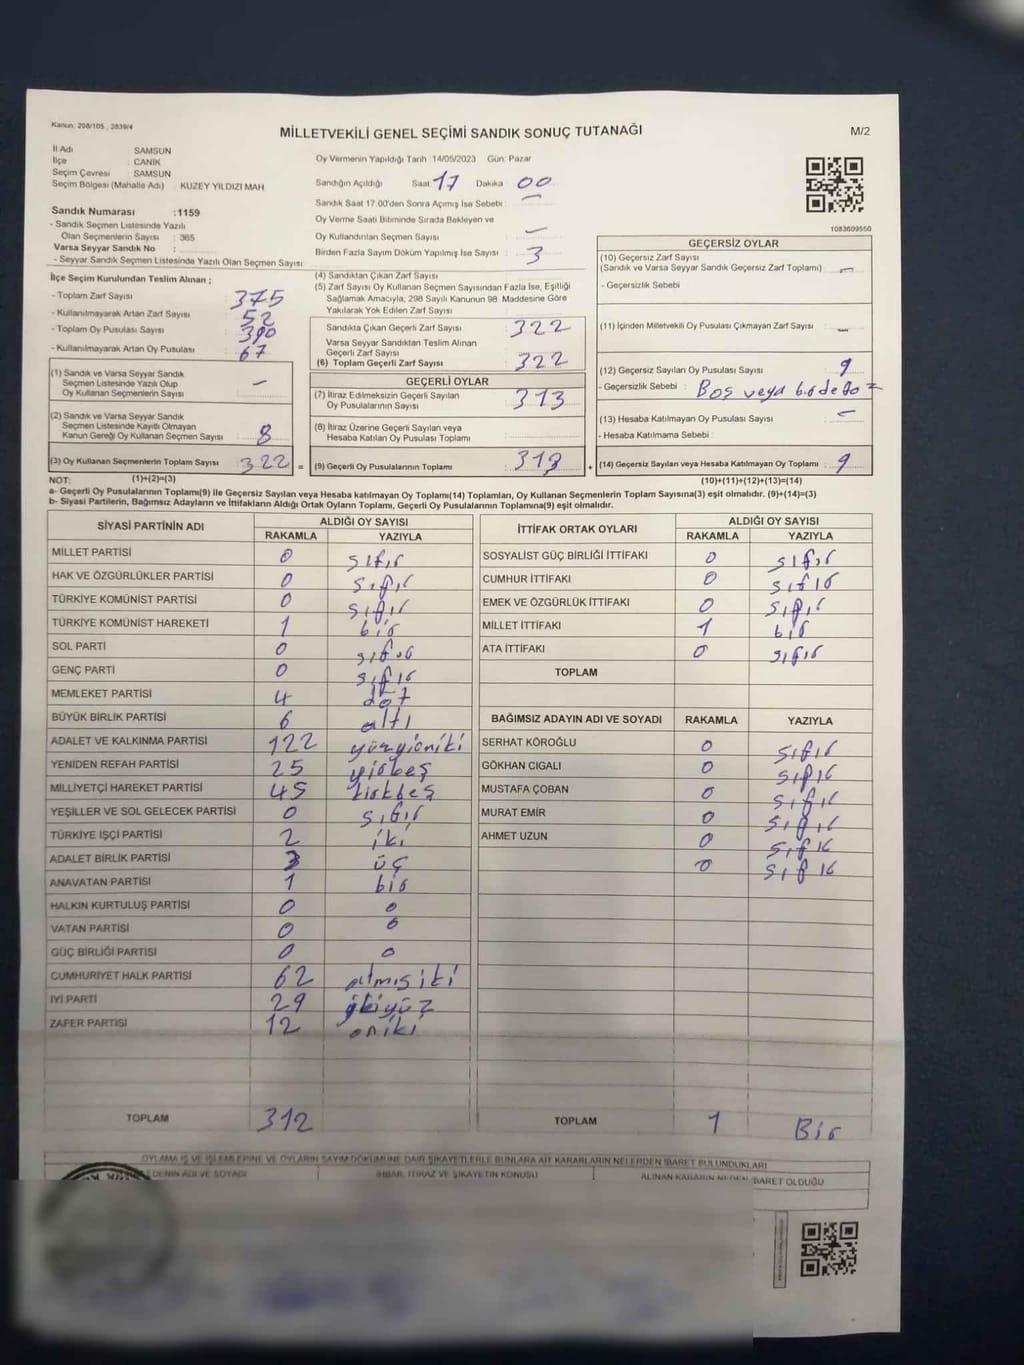 Kanun: 298/105 , 2839/4
MİLLETVEKİLİ GENEL SEÇİMİ SANDIK SONUÇ TUTANAĞI
M/2
İl Adı : SAMSUN
İlçe : CANİK
Seçim Çevresi : SAMSUN
Seçim Bölgesi (Mahalle Adı) : KUZEY YILDIZI MAH
Sandık Numarası :1159
- Sandık Seçmen Listesinde Yazılı
Olan Seçmenlerin Sayısı : 365
Varsa Seyyar Sandık No :
- Seyyar Sandık Seçmen Listesinde Yazılı Olan Seçmen Sayısı:
Oy Vermenin Yapıldığı Tarih :14/05/2023 Gün: Pazar
Sandığın Açıldığı Saat 17 Dakika 00
Sandık Saat 17:00'den Sonra Açımış İse Sebebi : —
Oy Verme Saati Bitiminde Sırada Bekleyen ve
Oy Kullandırılan Seçmen Sayısı —
Birden Fazla Sayım Döküm Yapılmış İse Sayısı : 3
1083609550
İlçe Seçim Kurulundan Teslim Alınan ;
- Toplam Zarf Sayısı : 375
- Kullanılmayarak Artan Zarf Sayısı : 52
- Toplam Oy Pusulası Sayısı : 390
- Kullanılmayarak Artan Oy Pusulası : 67
(1) Sandık ve Varsa Seyyar Sandık
Seçmen Listesinde Yazılı Olup
Oy Kullanan Seçmenlerin Sayısı —
(2) Sandık ve Varsa Seyyar Sandık
Seçmen Listesinde Kayıtlı Olmayan
Kanun Gereği Oy Kullanan Seçmen Sayısı 8
(3) Oy Kullanan Seçmenlerin Toplam Sayısı 322 =
(4) Sandıktan Çıkan Zarf Sayısı
(5) Zarf Sayısı Oy Kullanan Seçmen Sayısından Fazla İse, Eşitliği
Sağlamak Amacıyla; 298 Sayılı Kanunun 98. Maddesine Göre
Yakılarak Yok Edilen Zarf Sayısı
Sandıkta Çıkan Geçerli Zarf Sayısı 322
Varsa Seyyar Sandıktan Teslim Alınan
Geçerli Zarf Sayısı
(6) Toplam Geçerli Zarf Sayısı 322
GEÇERLİ OYLAR
(7) İtiraz Edilmeksizin Geçerli Sayılan
Oy Pusulalarının Sayısı 313
(8) İtiraz Üzerine Geçerli Sayılan veya
Hesaba Katılan Oy Pusulası Toplamı
(9) Geçerli Oy Pusulalarının Toplamı 313 +
GEÇERSİZ OYLAR
(10) Geçersiz Zarf Sayısı
(Sandık ve Varsa Seyyar Sandık Geçersiz Zarf Toplamı) —
- Geçersizlik Sebebi :
(11) İçinden Milletvekili Oy Pusulası Çıkmayan Zarf Sayısı —
(12) Geçersiz Sayılan Oy Pusulası Sayısı 9
- Geçersizlik Sebebi : Boş veya
(13) Hesaba Katılmayan Oy Pusulası Sayısı —
- Hesaba Katılmama Sebebi :
(14) Geçersiz Sayılan veya Hesaba Katılmayan Oy Toplamı 9
NOT: (1)+(2)=(3) (10)+(11)+(12)+(13)=(14)
a- Geçerli Oy Pusulalarının Toplamı(9) ile Geçersiz Sayılan veya Hesaba katılmayan Oy Toplamı(14) Toplamları, Oy Kullanan Seçmenlerin Toplam Sayısına(3) eşit olmalıdır. (9)+(14)=(3)
b- Siyasi Partilerin, Bağımsız Adayların ve İttifakların Aldığı Ortak Oyların Toplamı, Geçerli Oy Pusulalarının Toplamına(9) eşit olmalıdır.
SİYASİ PARTİNİN ADI ALDIĞI OY SAYISI
RAKAMLA YAZIYLA
MİLLET PARTİSİ 0 sıfır
HAK VE ÖZGÜRLÜKLER PARTİSİ 0 sıfır
TÜRKİYE KOMÜNİST PARTİSİ 0 sıfır
TÜRKİYE KOMÜNİST HAREKETİ 1 bir
SOL PARTİ 0 sıfır
GENÇ PARTİ 0 sıfır
MEMLEKET PARTİSİ 4 döt
BÜYÜK BİRLİK PARTİSİ 6 altı
ADALET VE KALKINMA PARTİSİ 122 yüzyioniki
YENİDEN REFAH PARTİSİ 25 yirbeş
MİLLİYETÇİ HAREKET PARTİSİ 45 kırkbeş
YEŞİLLER VE SOL GELECEK PARTİSİ 0 sıfır
TÜRKİYE İŞÇİ PARTİSİ 2 iki
ADALET BİRLİK PARTİSİ 3 üç
ANAVATAN PARTİSİ 1 bir
HALKIN KURTULUŞ PARTİSİ 0 0
VATAN PARTİSİ 0 0
GÜÇ BİRLİĞİ PARTİSİ 0 0
CUMHURİYET HALK PARTİSİ 62 atmışiki
İYİ PARTİ 29
ZAFER PARTİSİ 12 oniki
TOPLAM 312
İTTİFAK ORTAK OYLARI ALDIĞI OY SAYISI
RAKAMLA YAZIYLA
SOSYALİST GÜÇ BİRLİĞİ İTTİFAKI 0 sıfır
CUMHUR İTTİFAKI 0 sıfır
EMEK VE ÖZGÜRLÜK İTTİFAKI 0 sıfır
MİLLET İTTİFAKI 1 bir
ATA İTTİFAKI 0 sıfır
TOPLAM
BAĞIMSIZ ADAYIN ADI VE SOYADI RAKAMLA YAZIYLA
SERHAT KÖROĞLU 0 sıfır
GÖKHAN CIGALI 0 sıfır
MUSTAFA ÇOBAN 0 sıfır
MURAT EMİR 0 sıfır
AHMET UZUN 0 sıfır
0 sıfır
TOPLAM 1 Bir
OYLAMA İŞ VE İŞLEMLERİNE VE OYLARIN SAYIM DÖKÜMÜNE DAİR ŞİKAYETLERLE BUNLARA AİT KARARLARIN NELERDEN İBARET BULUNDUKLARI
EDENİN ADI VE SOYADI İHBAR, İTİRAZ VE ŞİKAYETİN KONUSU ALINAN KARARIN NEDEN İBARET OLDUĞU